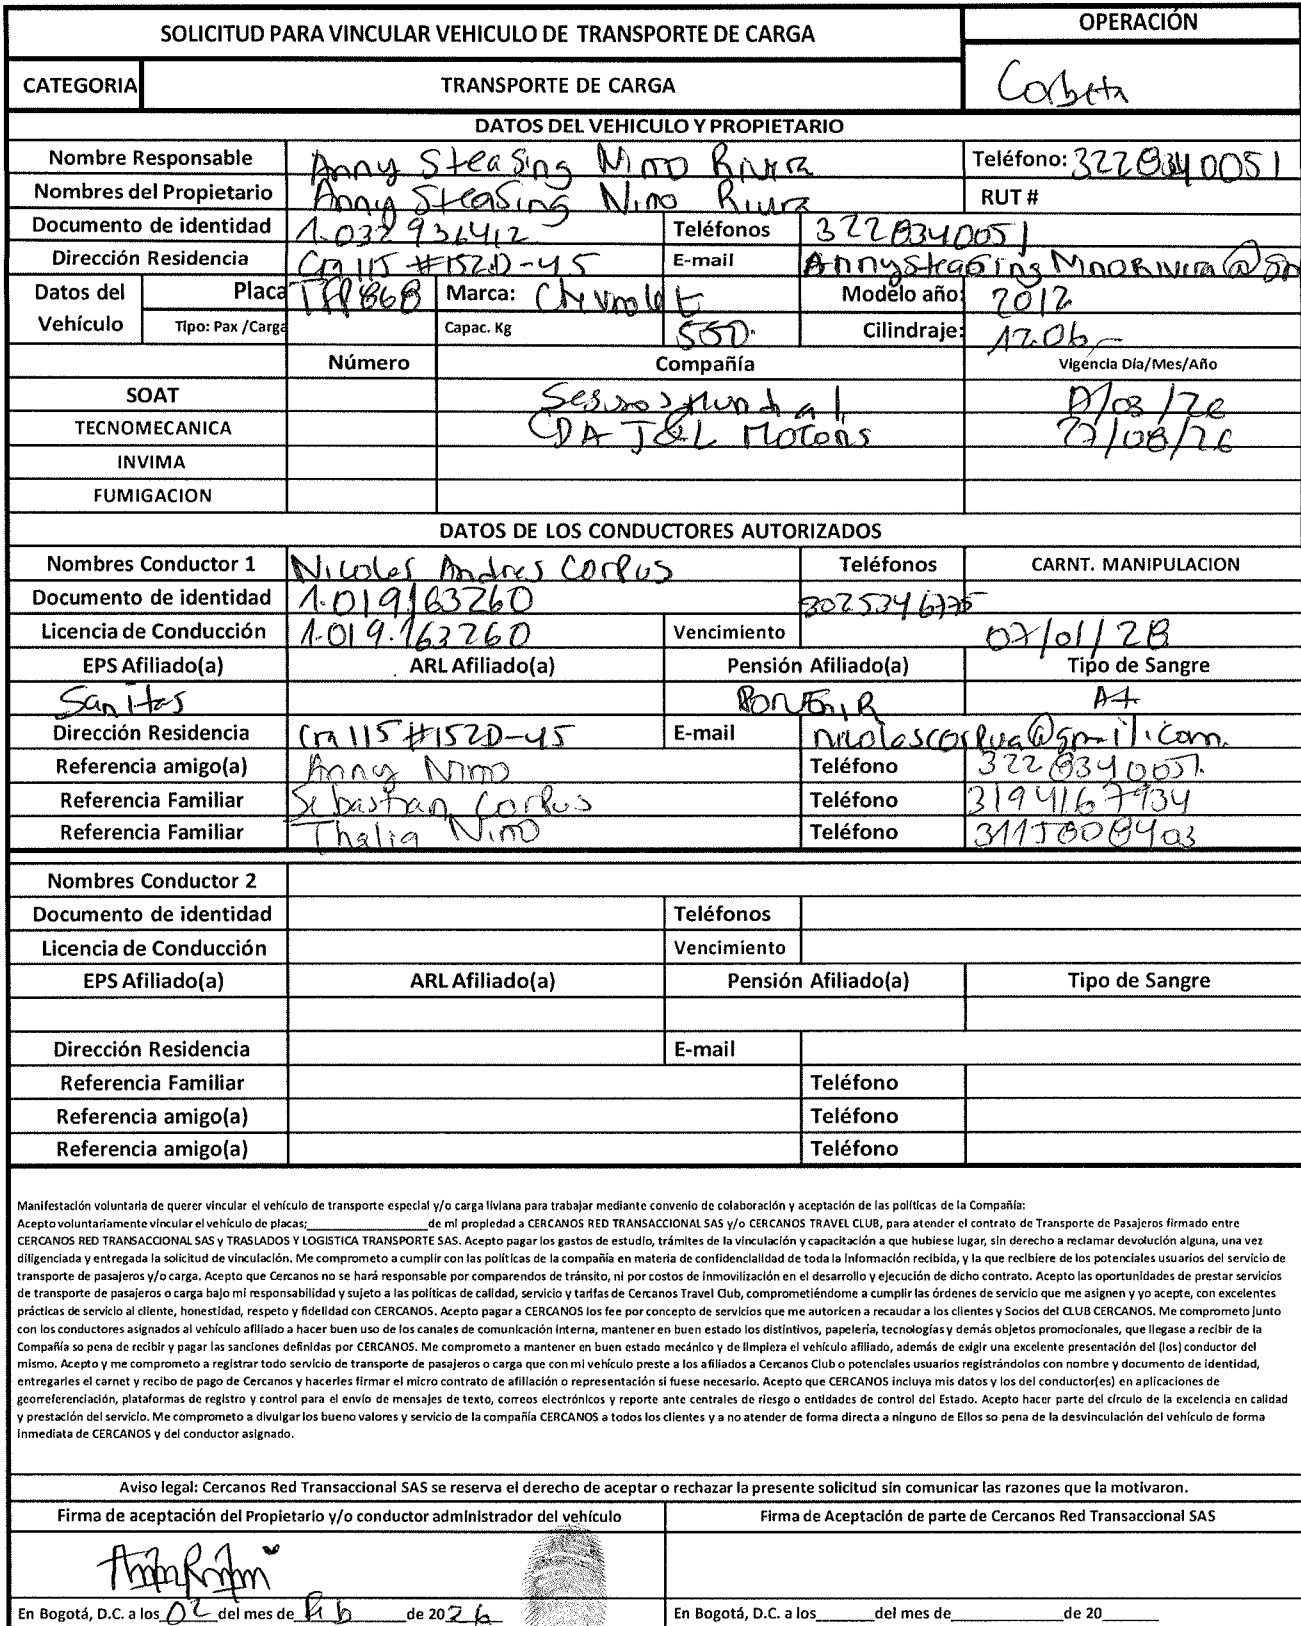 SOLICITUD PARA VINCULAR VEHICULO DE TRANSPORTE DE CARGA
OPERACIÓN
CATEGORIA TRANSPORTE DE CARGA
Corbeta
DATOS DEL VEHICULO Y PROPIETARIO
Nombre Responsable Anny Steasing Nino Rivera Teléfono: 3228340051
Nombres del Propietario Anny Steasing Nino Rivera RUT #
Documento de identidad 1.032936412 Teléfonos 3228340051
Dirección Residencia Cra 115 #152D-45 E-mail AnnysteasingNinoRivera@gm
Datos del Vehículo Placa Marca: Chevrolet Modelo año: 2012
Tipo: Pax /Carga Capac. Kg 550. Cilindraje: 12.06
Número Compañía Vigencia Día/Mes/Año
SOAT Seguros Mundial /08/26
TECNOMECANICA CDA J&L Motors 27/08/26
INVIMA
FUMIGACION
DATOS DE LOS CONDUCTORES AUTORIZADOS
Nombres Conductor 1 Nicolas Andres Corpus Teléfonos CARNT. MANIPULACION
Documento de identidad 1.019163260
Licencia de Conducción 1.019.163260 Vencimiento 07/01/28
EPS Afiliado(a) ARL Afiliado(a) Pensión Afiliado(a) Tipo de Sangre
Sanitas Porvenir A+
Dirección Residencia Cra 115 #152D-45 E-mail nicolascorpua@gmail.com.
Referencia amigo(a) Anny Nino Teléfono 3228340051.
Referencia Familiar Sebastian Corpus Teléfono 3194167934
Referencia Familiar Thalia Nino Teléfono 3115808403
Nombres Conductor 2
Documento de identidad Teléfonos
Licencia de Conducción Vencimiento
EPS Afiliado(a) ARL Afiliado(a) Pensión Afiliado(a) Tipo de Sangre
Dirección Residencia E-mail
Referencia Familiar Teléfono
Referencia amigo(a) Teléfono
Referencia amigo(a) Teléfono
Manifestación voluntaria de querer vincular el vehículo de transporte especial y/o carga liviana para trabajar mediante convenio de colaboración y aceptación de las políticas de la Compañía:
Acepto voluntariamente vincular el vehículo de placas;____________________de mi propiedad a CERCANOS RED TRANSACCIONAL SAS y/o CERCANOS TRAVEL CLUB, para atender el contrato de Transporte de Pasajeros firmado entre
CERCANOS RED TRANSACCIONAL SAS y TRASLADOS Y LOGISTICA TRANSPORTE SAS. Acepto pagar los gastos de estudio, trámites de la vinculación y capacitación a que hubiese lugar, sin derecho a reclamar devolución alguna, una vez
diligenciada y entregada la solicitud de vinculación. Me comprometo a cumplir con las políticas de la compañía en materia de confidencialidad de toda la información recibida, y la que recibiere de los potenciales usuarios del servicio de
transporte de pasajeros y/o carga. Acepto que Cercanos no se hará responsable por comparendos de tránsito, ni por costos de inmovilización en el desarrollo y ejecución de dicho contrato. Acepto las oportunidades de prestar servicios
de transporte de pasajeros o carga bajo mi responsabilidad y sujeto a las políticas de calidad, servicio y tarifas de Cercanos Travel Club, comprometiéndome a cumplir las órdenes de servicio que me asignen y yo acepte, con excelentes
prácticas de servicio al cliente, honestidad, respeto y fidelidad con CERCANOS. Acepto pagar a CERCANOS los fee por concepto de servicios que me autoricen a recaudar a los clientes y Socios del CLUB CERCANOS. Me comprometo junto
con los conductores asignados al vehículo afiliado a hacer buen uso de los canales de comunicación interna, mantener en buen estado los distintivos, papelería, tecnologías y demás objetos promocionales, que llegase a recibir de la
Compañía so pena de recibir y pagar las sanciones definidas por CERCANOS. Me comprometo a mantener en buen estado mecánico y de limpieza el vehículo afiliado, además de exigir una excelente presentación del (los) conductor del
mismo. Acepto y me comprometo a registrar todo servicio de transporte de pasajeros o carga que con mi vehículo preste a los afiliados a Cercanos Club o potenciales usuarios registrándolos con nombre y documento de identidad,
entregarles el carnet y recibo de pago de Cercanos y hacerles firmar el micro contrato de afiliación o representación si fuese necesario. Acepto que CERCANOS incluya mis datos y los del conductor(es) en aplicaciones de
georreferenciación, plataformas de registro y control para el envío de mensajes de texto, correos electrónicos y reporte ante centrales de riesgo o entidades de control del Estado. Acepto hacer parte del círculo de la excelencia en calidad
y prestación del servicio. Me comprometo a divulgar los bueno valores y servicio de la compañía CERCANOS a todos los clientes y a no atender de forma directa a ninguno de Ellos so pena de la desvinculación del vehículo de forma
inmediata de CERCANOS y del conductor asignado.
Aviso legal: Cercanos Red Transaccional SAS se reserva el derecho de aceptar o rechazar la presente solicitud sin comunicar las razones que la motivaron.
Firma de aceptación del Propietario y/o conductor administrador del vehículo Firma de Aceptación de parte de Cercanos Red Transaccional SAS
En Bogotá, D.C. a los 02 del mes de Feb de 2026 En Bogotá, D.C. a los______del mes de____________de 20______